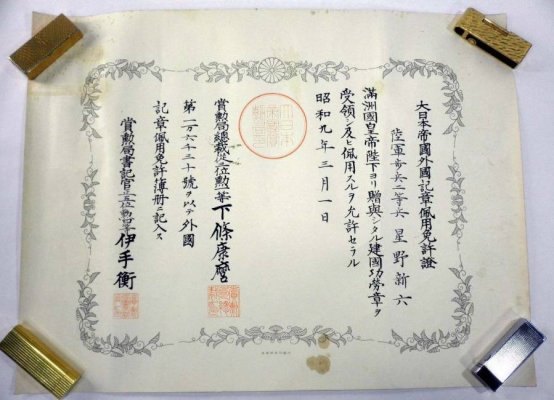 大日本帝國外國記章佩用免許證
陸軍歩兵二等兵 星野新六
滿洲國皇帝陛下ヨリ贈與シタル建國功勞章ヲ
受領シ及ヒ佩用スルヲ允許セラル
昭和九年三月一日
賞勲局總裁從位勲一等 下條康麿
第一万六千二十號ヲ以テ外國
記章佩用免許簿册ニ記入ス
賞勲局書記官 伊手衡